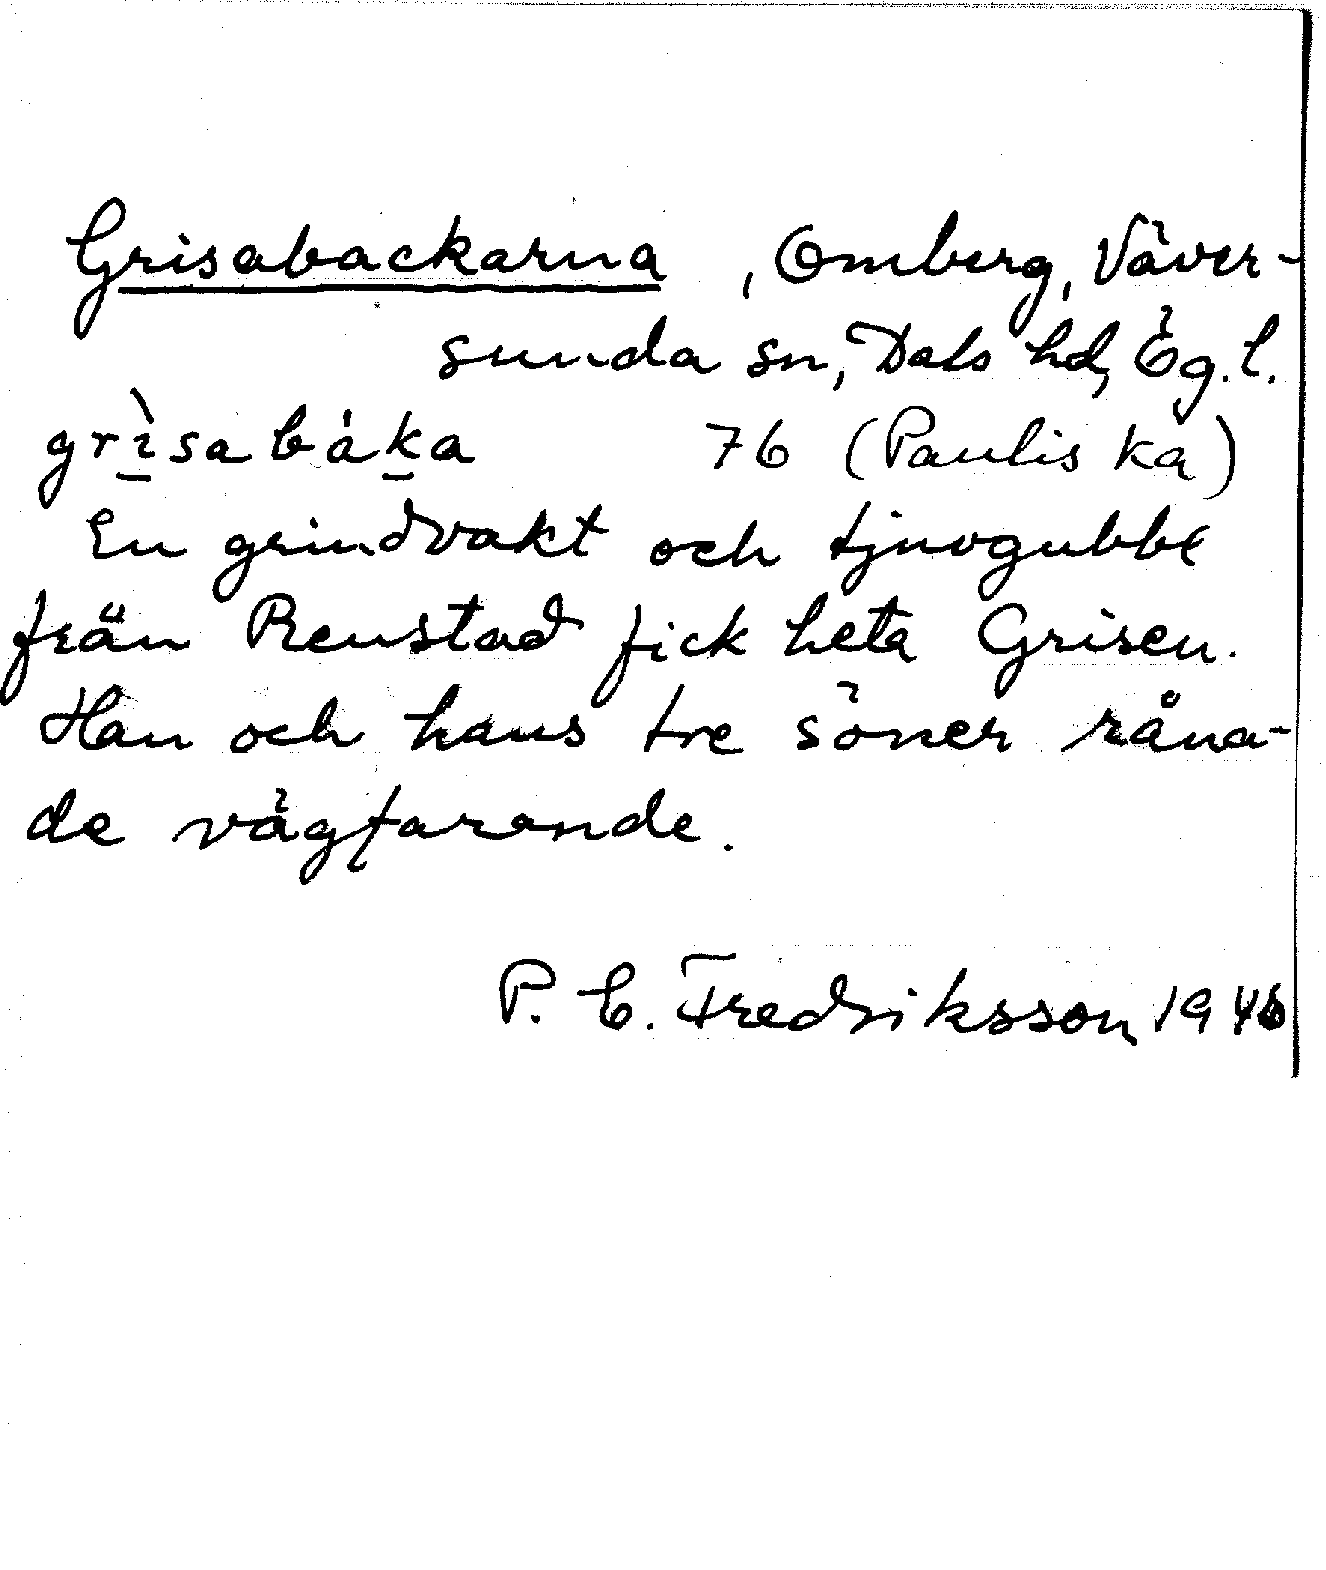 Grisabackarna, Omberg, Väver-
sunda sn, Dals hd, Ög. l.
grìsabáka 76 (Paulis ka)
En grindvakt och tjuvgubbe
från Renstad fick heta Grisen.
Han och hans tre söner råna-
de vägfarande.
P. C. Fredriksson 1946